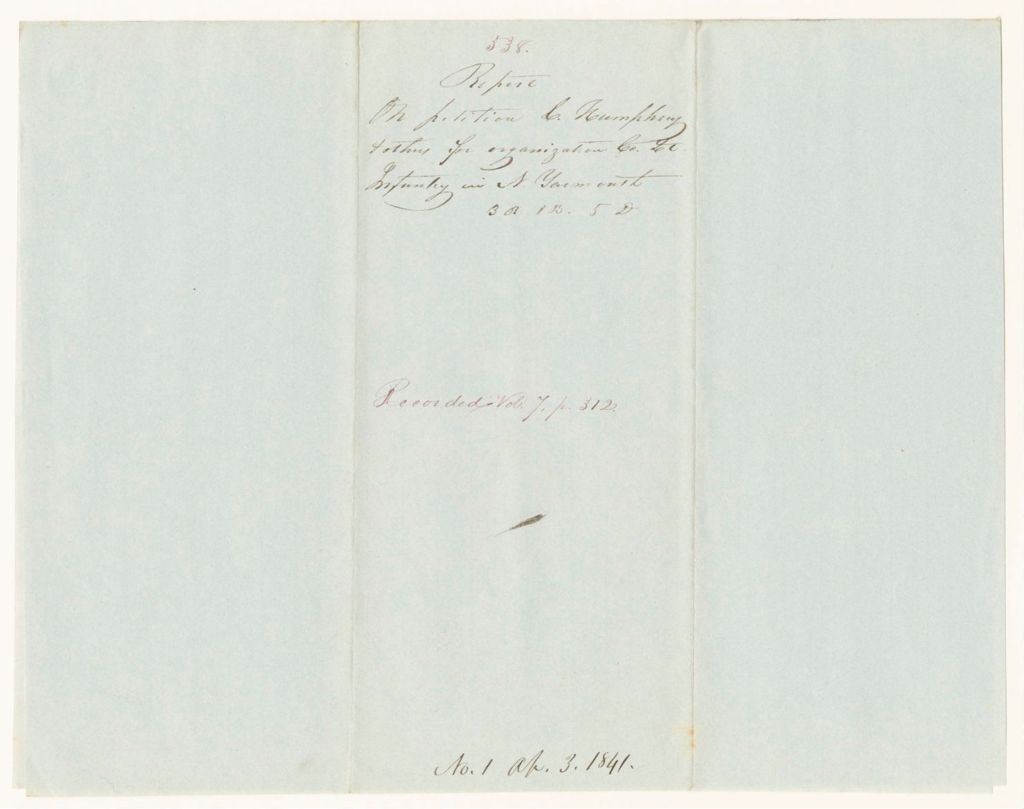 538.
Report
On petition C. Humphrey
& others for organization Co. Lt.
Infantry in N. Yarmouth
3 R. 1 B. 5 D
Recorded Vol. 7. p. 312.
No. 1 Ap. 3. 1841.